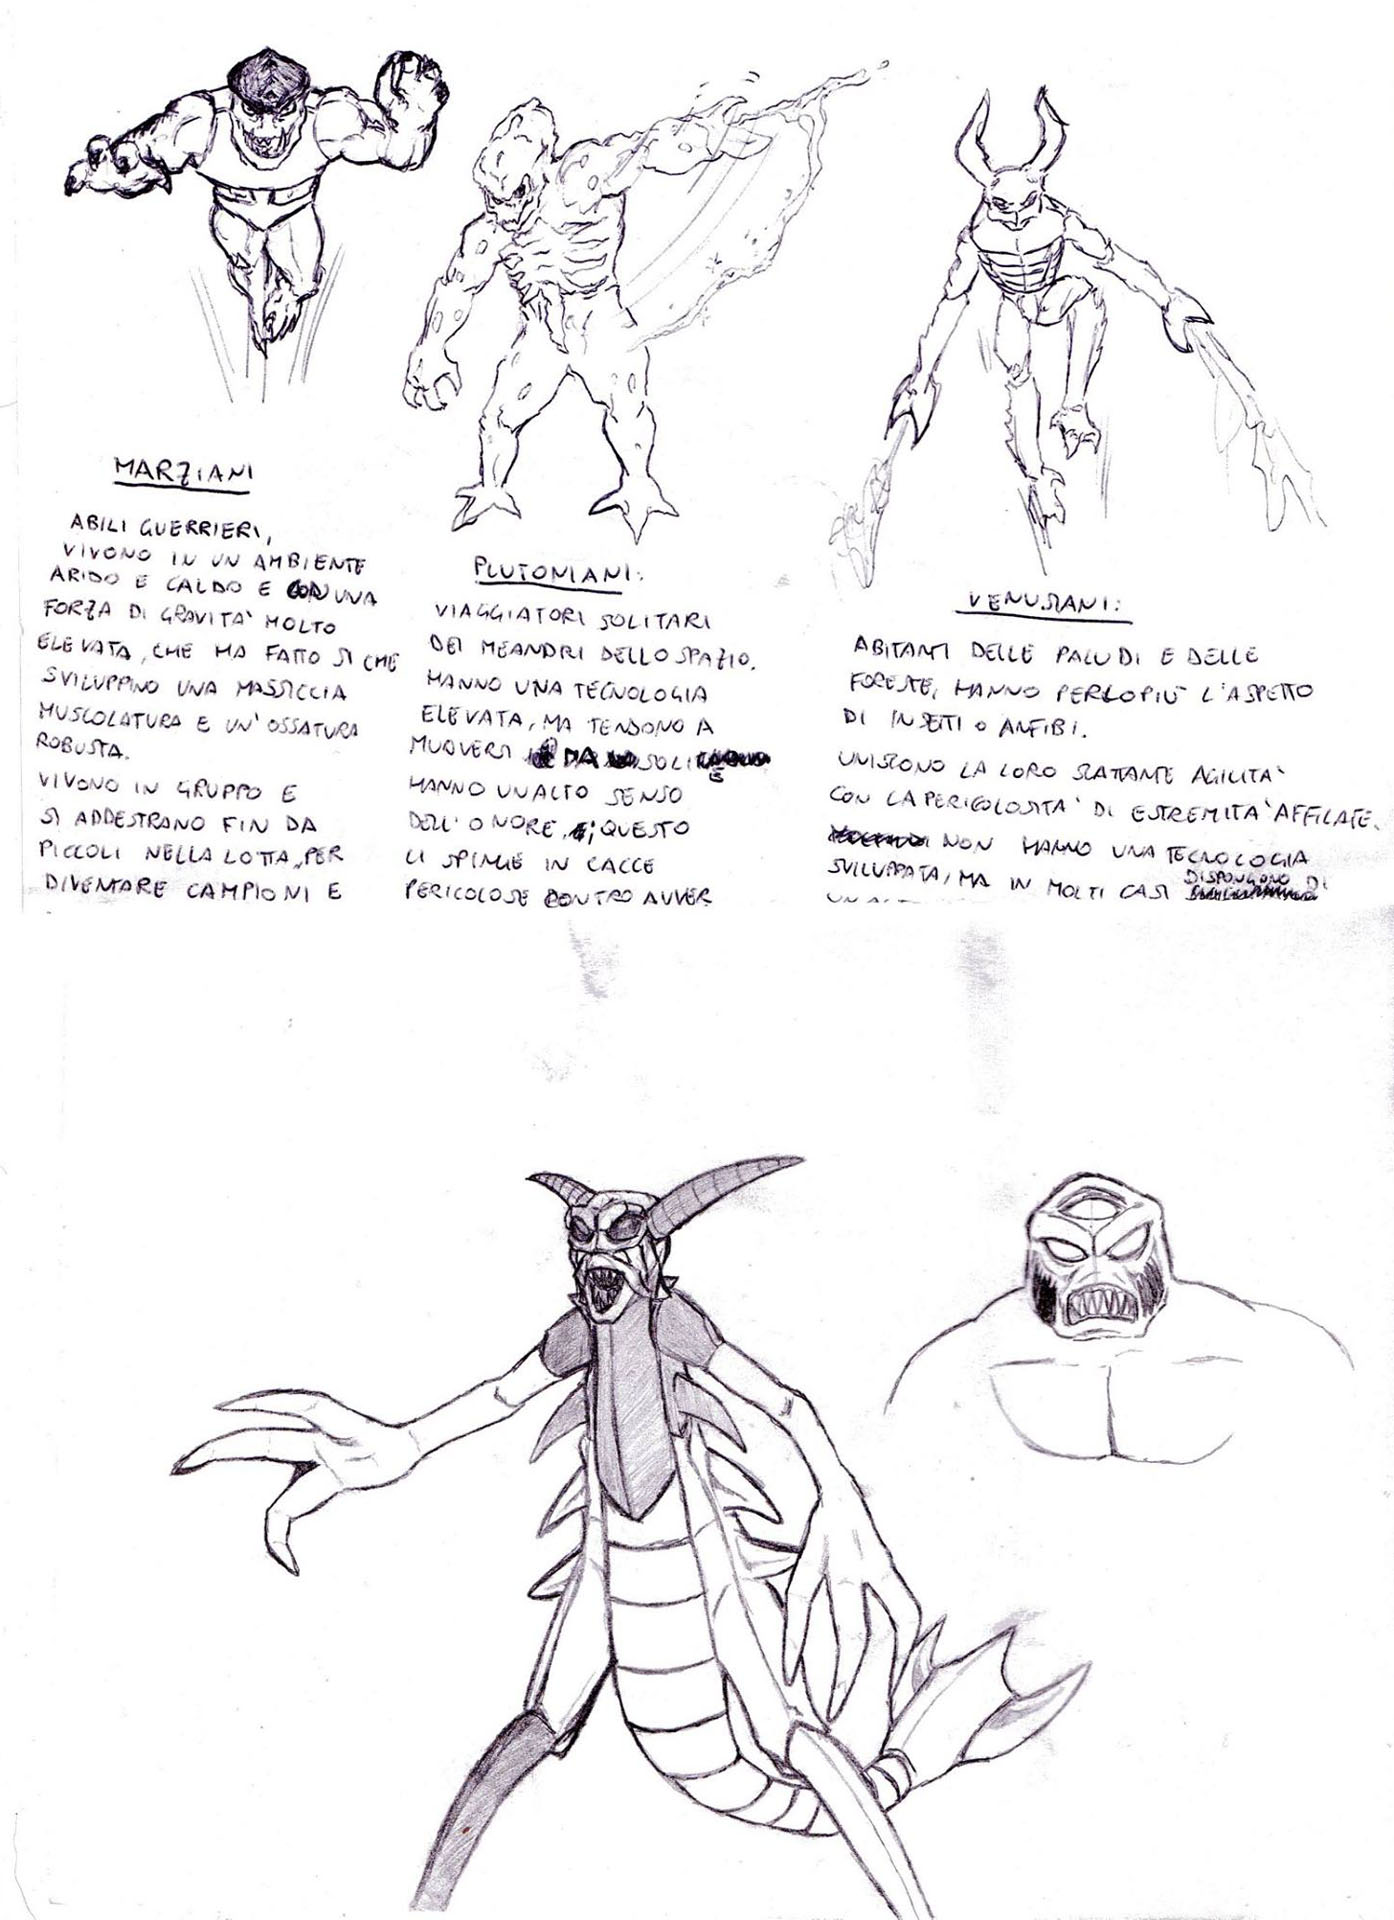 MARZIANI
ABILI GUERRIERI,
VIVONO IN UN AMBIENTE
ARIDO E CALDO E CON UNA
FORZA DI GRAVITA' MOLTO
ELEVATA, CHE HA FATTO SI CHE
SVILUPPINO UNA MASSICCIA
MUSCOLATURA E UN'OSSATURA
ROBUSTA.
VIVONO IN GRUPPO E
SI ADDESTRANO FIN DA
PICCOLI NELLA LOTTA, PER
DIVENTARE CAMPIONI E
PLUTONIANI:
VIAGGIATORI SOLITARI
DEI MEANDRI DELLO SPAZIO.
HANNO UNA TECNOLOGIA
ELEVATA, MA TENDONO A
MUOVERSI DA SOLI
HANNO UN ALTO SENSO
DELL'ONORE, QUESTO
LI SPINGE IN CACCE
PERICOLOSE CONTRO AVVER
VENUSIANI:
ABITANTI DELLE PALUDI E DELLE
FORESTE, HANNO PERLOPIU' L'ASPETTO
DI INSETTI O ANFIBI.
UNISCONO LA LORO SCATTANTE AGILITA'
CON LA PERICOLOSITA' DI ESTREMITA' AFFILATE.
NON HANNO UNA TECNOLOGIA
SVILUPPATA, MA IN MOLTI CASI DISPONGONO DI